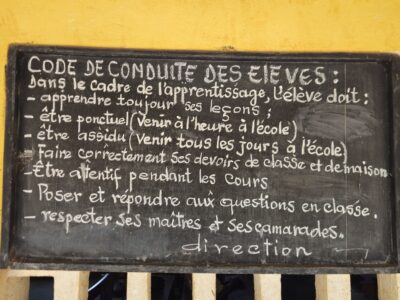 CODE DE CONDUITE DES ELEVES :
Dans le cadre de l'apprentissage, l'élève doit :
- apprendre toujour ses leçons ;
- être ponctuel (venir à l'heure à l'école)
- être assidu (venir tous les jours à l'école)
- Faire correctement ses devoirs de classe et de maison
- Être attentif pendant les cours
- Poser et répondre aux questions en classe.
- respecter ses maîtres et ses camarades.
direction